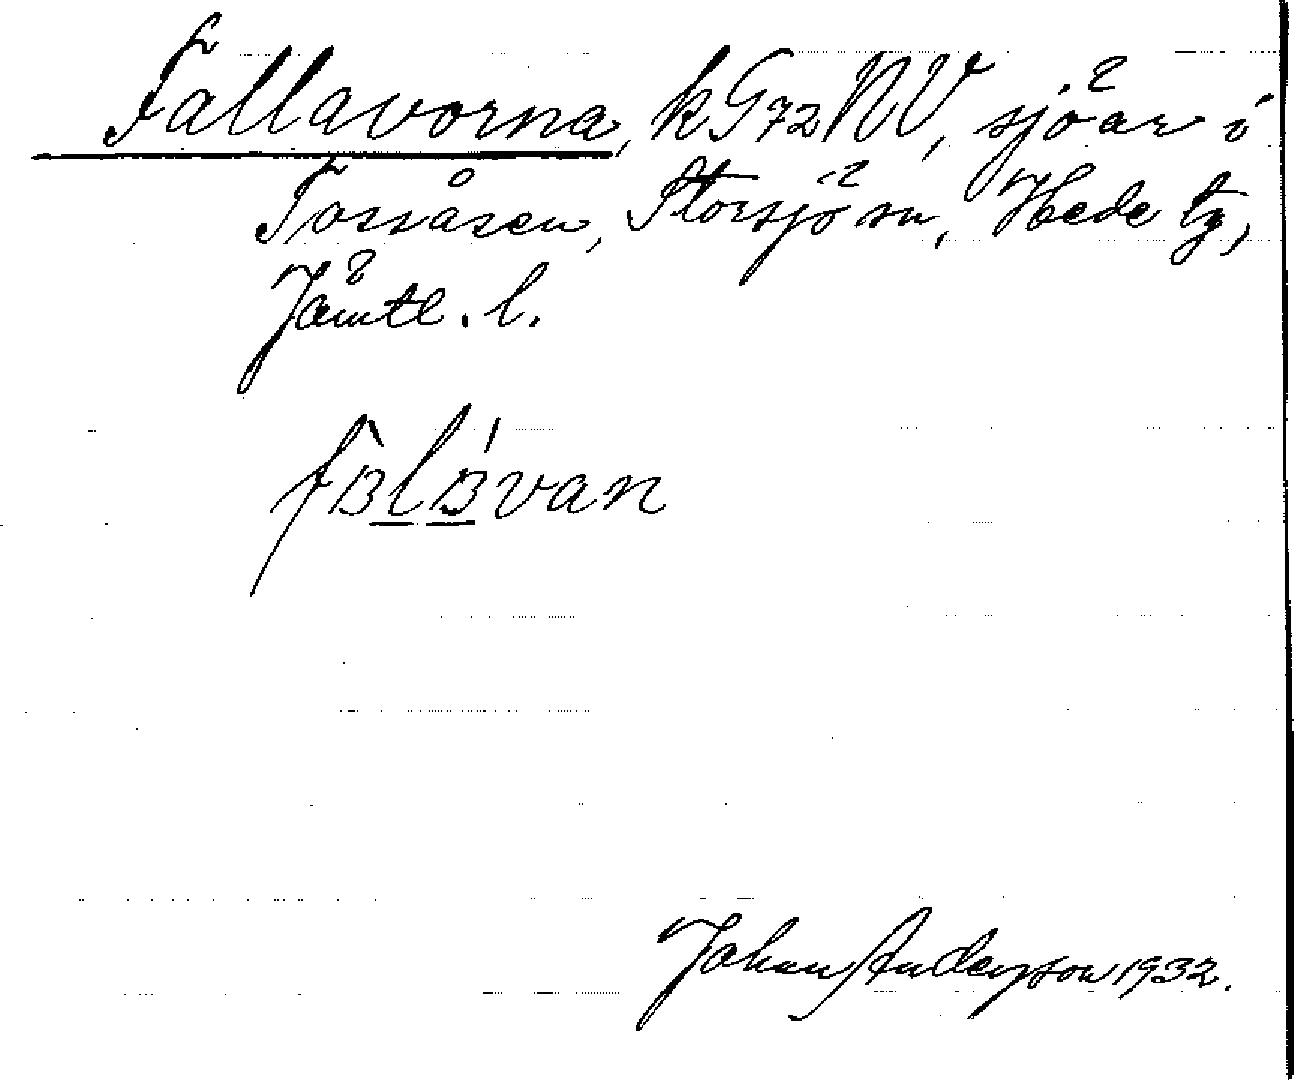 Fallavorna, kG72NV, sjöar i
Torråsen, Storsjö sn, Hede tg,
Jämtl. l.
fʙlʙ́van
Johan Anderson 1932.